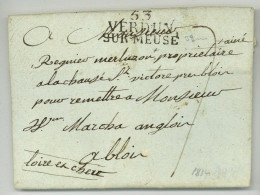 53
VERDUN
SUR MEUSE
A Monsieur
Requier merluzon propriétaire
a la chausé St victore pres bloir
pour remettre a Monsieur
Marcha anglois
a bloir
loire et chere